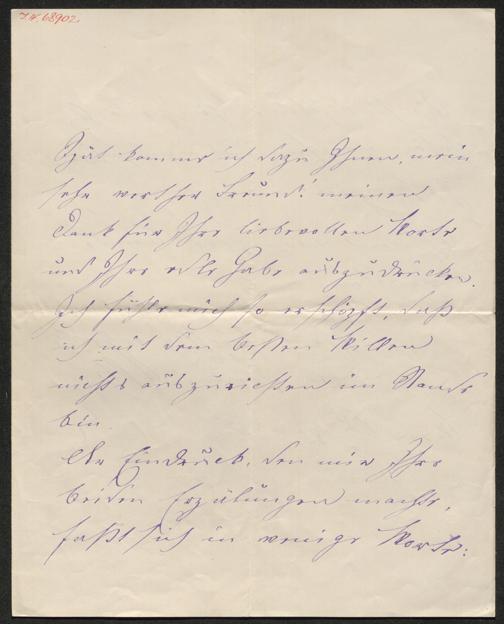 I.N. 68902
Spät komme ich dazu Ihnen, mein
sehr werther Freund! meinen
Dank für Ihre liebevollen Worte
und Ihre edle Gabe auszudrücken.
Ich fühle mich so erschöpft, daß
ich mit dem besten Willen
nichts auszurichten im Stande
bin.
Der Eindruck, den mir Ihre
beiden Erzälungen machte,
faßt sich in wenige Worte: